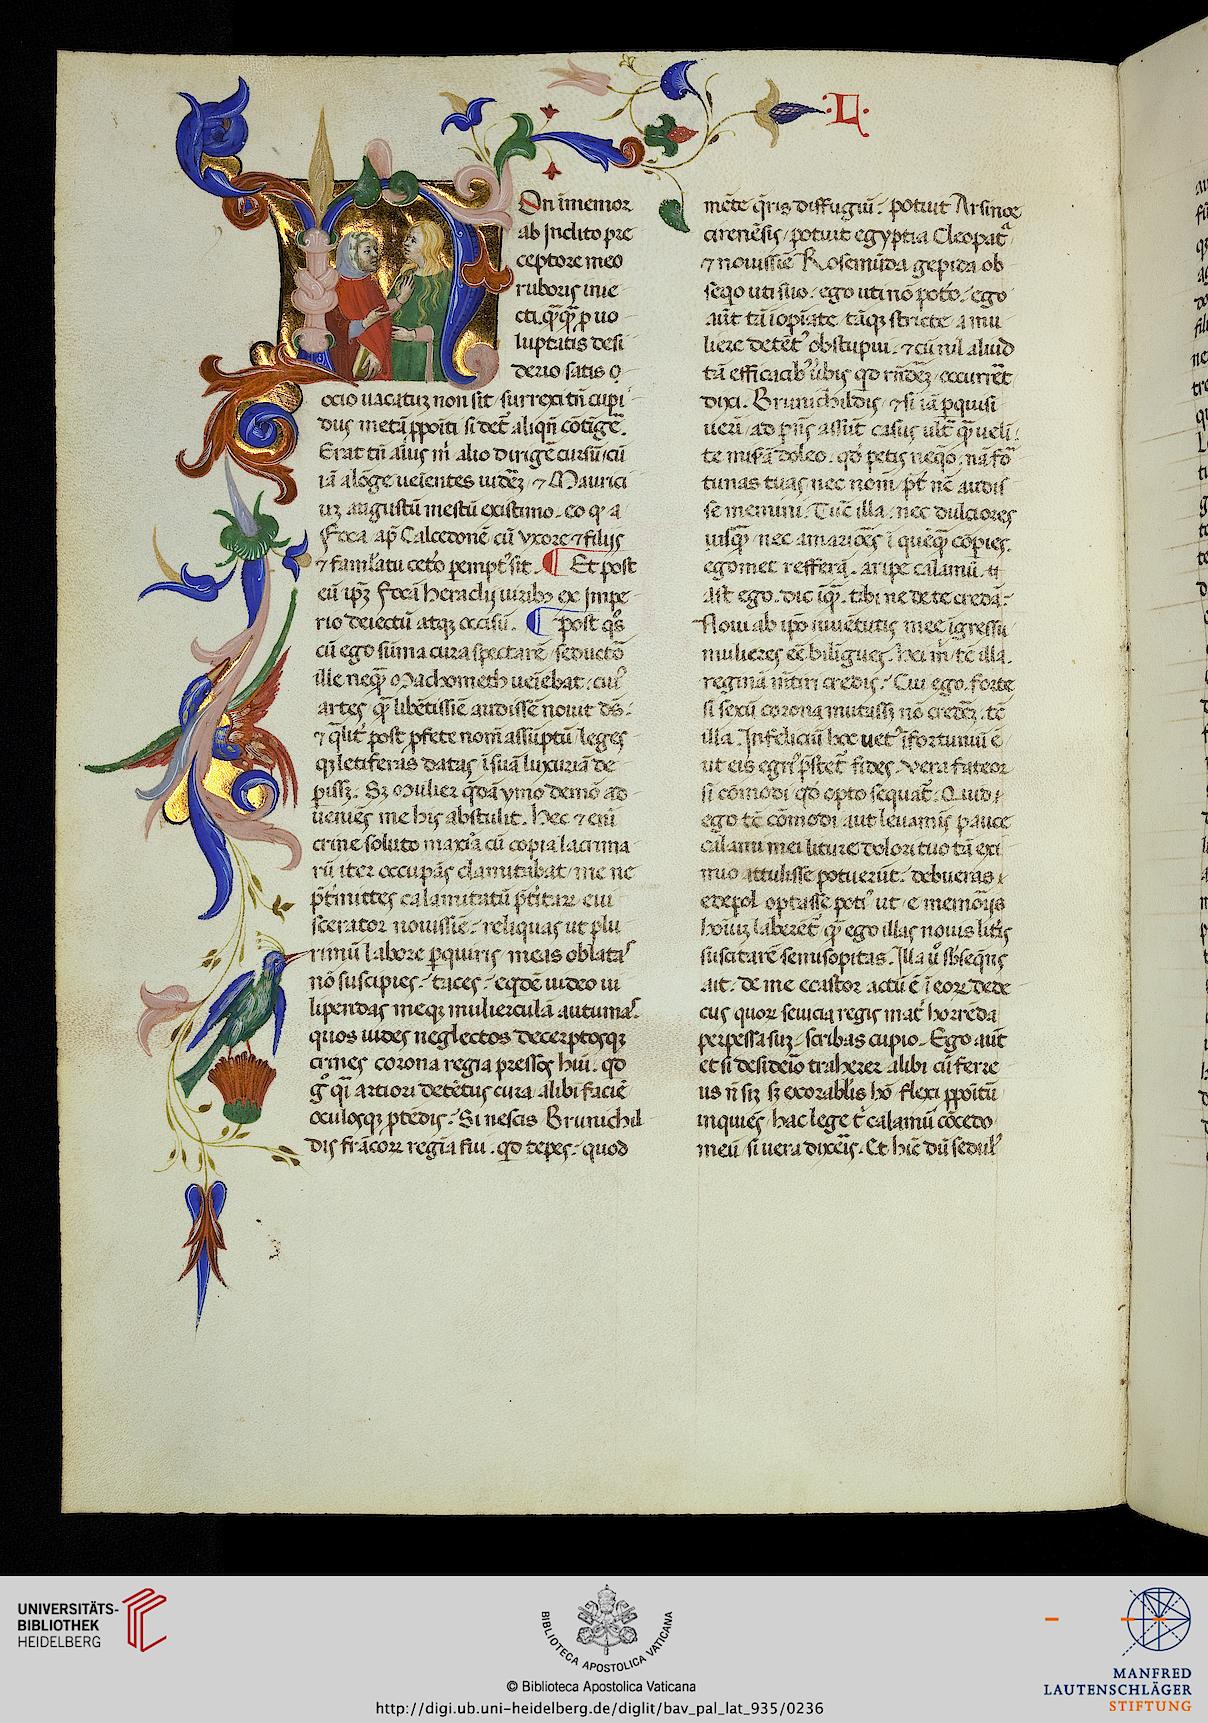 ·L·
On īmemor
ab Inclito pre
ceptore meo
ruboris inie
cti. q̄q̄ p uo
luptatis desi
derio satis o
ocio uacatuz non sit surrexi tn̄ cupi
dus metā ppōiti si det᷑ aliqn̄ cōtigē᷑.
Erat tn̄ aīus m̄ alio dirigē cursū cū
iā alōge ueīentes uidēz ⁊ Maurici
uz augustū mestū existimo. eo q a
Foca ap̄ Calcedonē cū uxore ⁊ filijs
⁊ famlatu ceto pempt᷑ sit. ¶ Et post
eū ipz̄ Focā heraclij uirib ex Impe
rio deiectū atqz occisū. ¶ post q̄s
cū ego sūma cura spectarē seductō
ille neqȝ Machometh ueīebat cui᷑
artes q̄ libētissīe audissē nouit d̄s.
⁊ q̄lit᷑ post pfete nom̄ assūptū leges
qȝ letiferas datas ī suā luxuriā de
pissȝ. Sȝ Mulier q̄dā ymo demō ad
ueniēs me his abstulit. Hec ⁊ eni
crine soluto maxīa cū copia lacrima
rū iter occupās clamitabat me ne
p̄t̄mittes calamitatū p̄t̄itarȝ eui
scerator nouissīe. reliquas ut plu
rimū labore pquiris meas oblata᷑
nō suscipies. taces. eqdē uideo ui
lipendas meqȝ mulierculā autuma᷑.
quos uides neglectos decerptosqȝ
crines corona regia pressos hui. qd
g᷑ qī artiori detētus cura alibi faciē
oculosqȝ ptēdis. Si nescis Brunichil
dis frācorȝ regīa fui. qd tepes. quod
mēte q̄ris diffugiū. potuit Arsinoe
cirenēsis potuit egyptia Cleopat᷑
⁊ nouissīe Rosemūda gepida ob
seqo uti suo. ego uti nō potō. ego
aūt tū īopīate tāqȝ stricte a mu
liere detēt᷑ obstupui. ⁊ cū nil aliud
tā efficacib ūbis qd r̄ndez occurrēt
dixi. Brunichildis ⁊ si iā pquisi
uerī ad p̄n̄s assūt casus ult᷑ q̄ ueli
te mīsā doleo. qd petis neqo. nā fō
tunas tuas nec nom̄ p̄t n̄c audis
se memini. Tūc illa. nec dulciores
uisq̄ nec amariōes ī queq̄ copies.
egomet refferā. aripe calamū. ti
Ast ego. dic īq̄. tibi ne de te credā.
Noui ab ipo iuuētutis mee īgressu
mulieres eē biligues. hei m̄ tc̄ illa.
reginā m̄tiri credis. Cui ego. forte
si sexū corona mutassȝ nō credēȝ. tc̄
illa. Infeliciū hoc uet᷑ ifortuniū ē
ut eis egri᷑ p̄stet᷑ fides. Vera fateor
si cōmodi qd opto sequat᷑. Quid
ego tc̄ cōmodi aut leuamis pauce
calami mei liture dolori tuo tā exi
mio attulisse potuerūt. debueras
edepol optasse poti᷑ ut e memoriis
hoīuȝ laberēt᷑ q̄ ego illas nouis litis
suscitarē semisopitas. Illa ū sbseqns
ait. de me ecastor actū ē ī eore dede
cus quorȝ seuicia regis mat᷑ horreda
perpessa suȝ. scribas cupio. Ego aūt
et si desideīo traherer alibi cū ferre
us n̄ siȝ sȝ exorablis hō flexi ppōitū
inquiēs hac lege t᷑ calamū cōcedo
meū si uera dixeīs. Et hic dū sedul᷑
UNIVERSITÄTS-
BIBLIOTHEK
HEIDELBERG
BIBLIOTECA APOSTOLICA VATICANA
© Biblioteca Apostolica Vaticana
http://digi.ub.uni-heidelberg.de/diglit/bav_pal_lat_935/0236
MANFRED
LAUTENSCHLÄGER
STIFTUNG